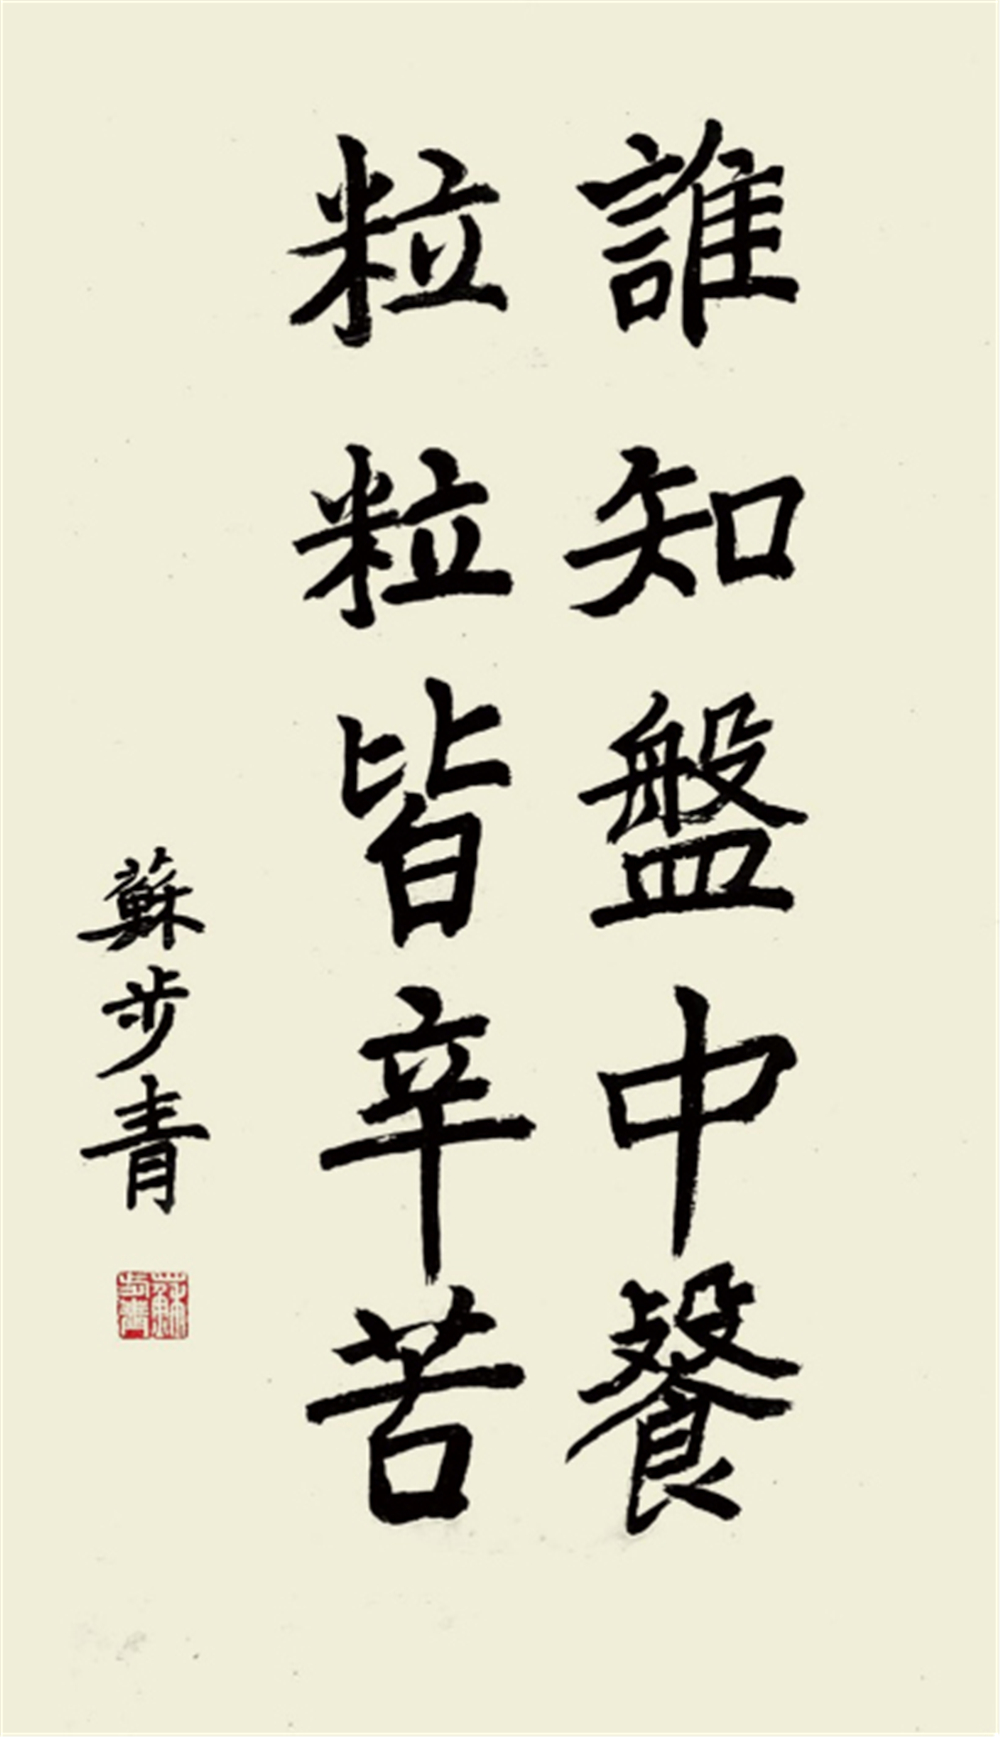 誰知盤中餐
粒粒皆辛苦
蘇步青
蘇步青